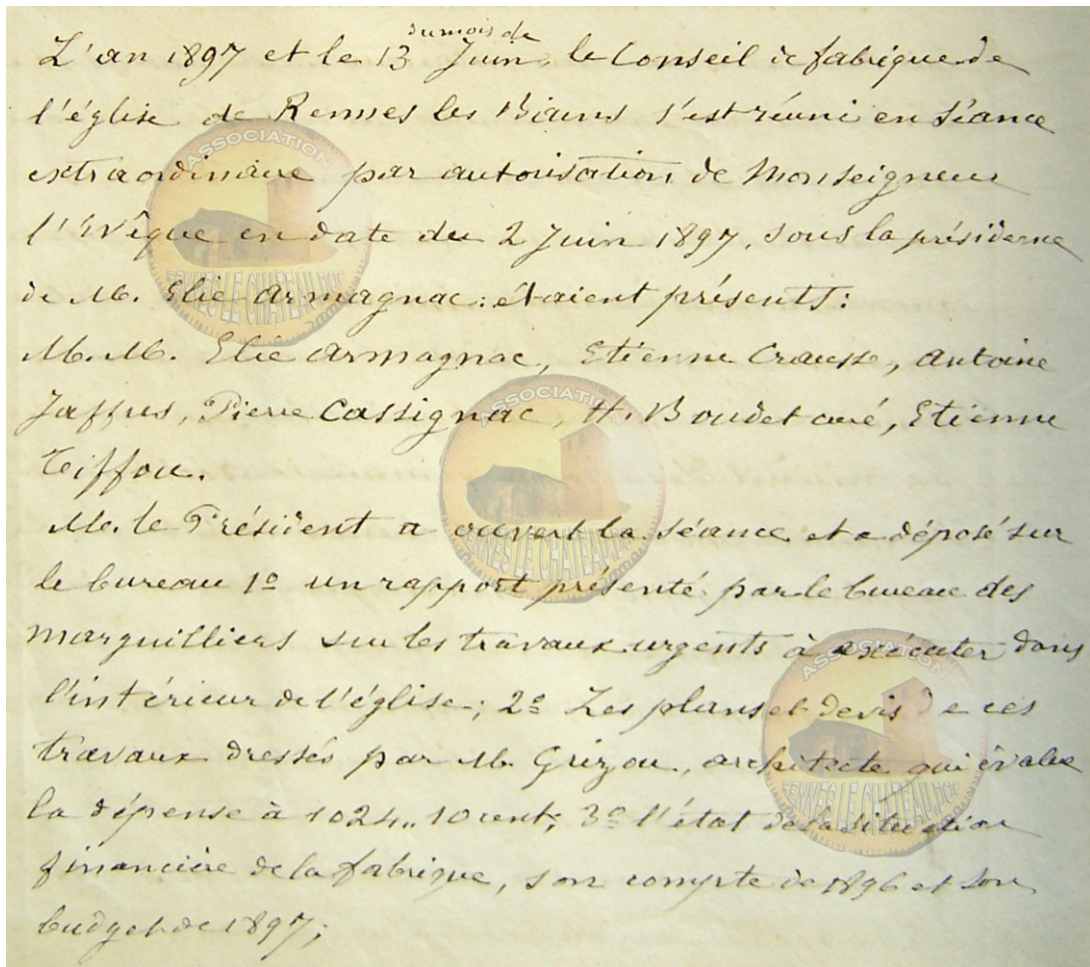 du mois de
L'an 1897 et le 13 Juin, le Conseil de fabrique de
l'église de Rennes les Bains s'est réuni en Séance
extraordinaire par autorisation de Monseigneur
l'Evêque en date du 2 Juin 1897, sous la présidence
de M. Elie Armagnac : étaient présents :
M.M. Elie Armagnac, Etienne Crausse, Antoine
Jaffus, Pierre Cassignac, H. Boudet curé, Etienne
Tiffou.
M. le Président a ouvert la séance et a déposé sur
le bureau 1º un rapport présenté par le bureau des
marguilliers sur les travaux urgents à exécuter dans
l'intérieur de l'église ; 2º Les plans et devis de ces
travaux dressés par M. Grizou, architecte qui évalue
la dépense à 1024,,10 cent; 3º l'état de la situation
financière de la fabrique, son compte de 1896 et son
budget de 1897;
ASSOCIATION
RENNES LE CHATEAU.DOC
ASSOCIATION
RENNES LE CHATEAU.DOC
ASSOCIATION
RENNES LE CHATEAU.DOC